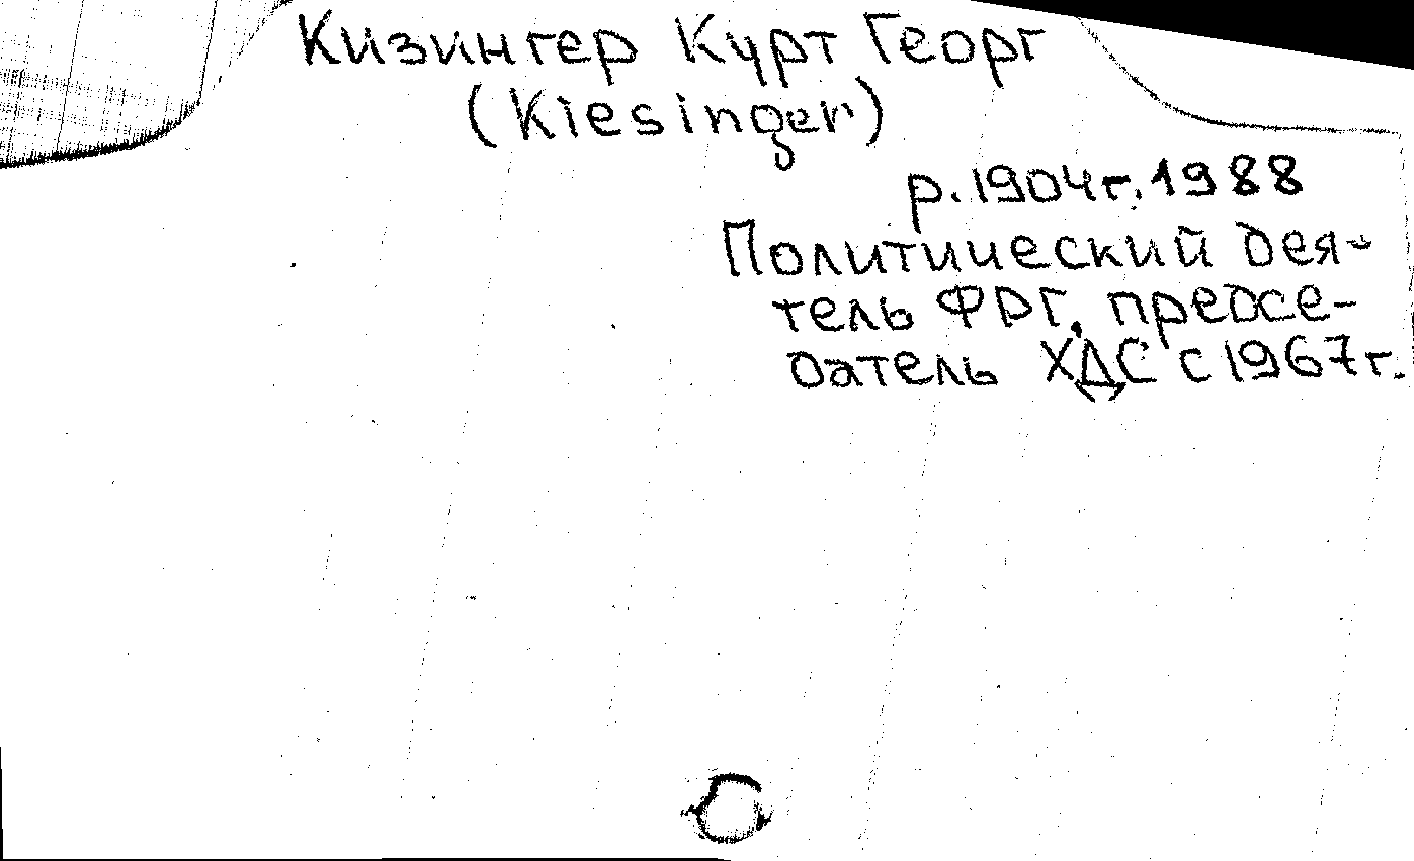 Кизингер Курт Георг
(Kiesinger)
р. 1904г. 1988
Политический дея-
тель ФРГ, предсе-
датель ХДС с 1967г.